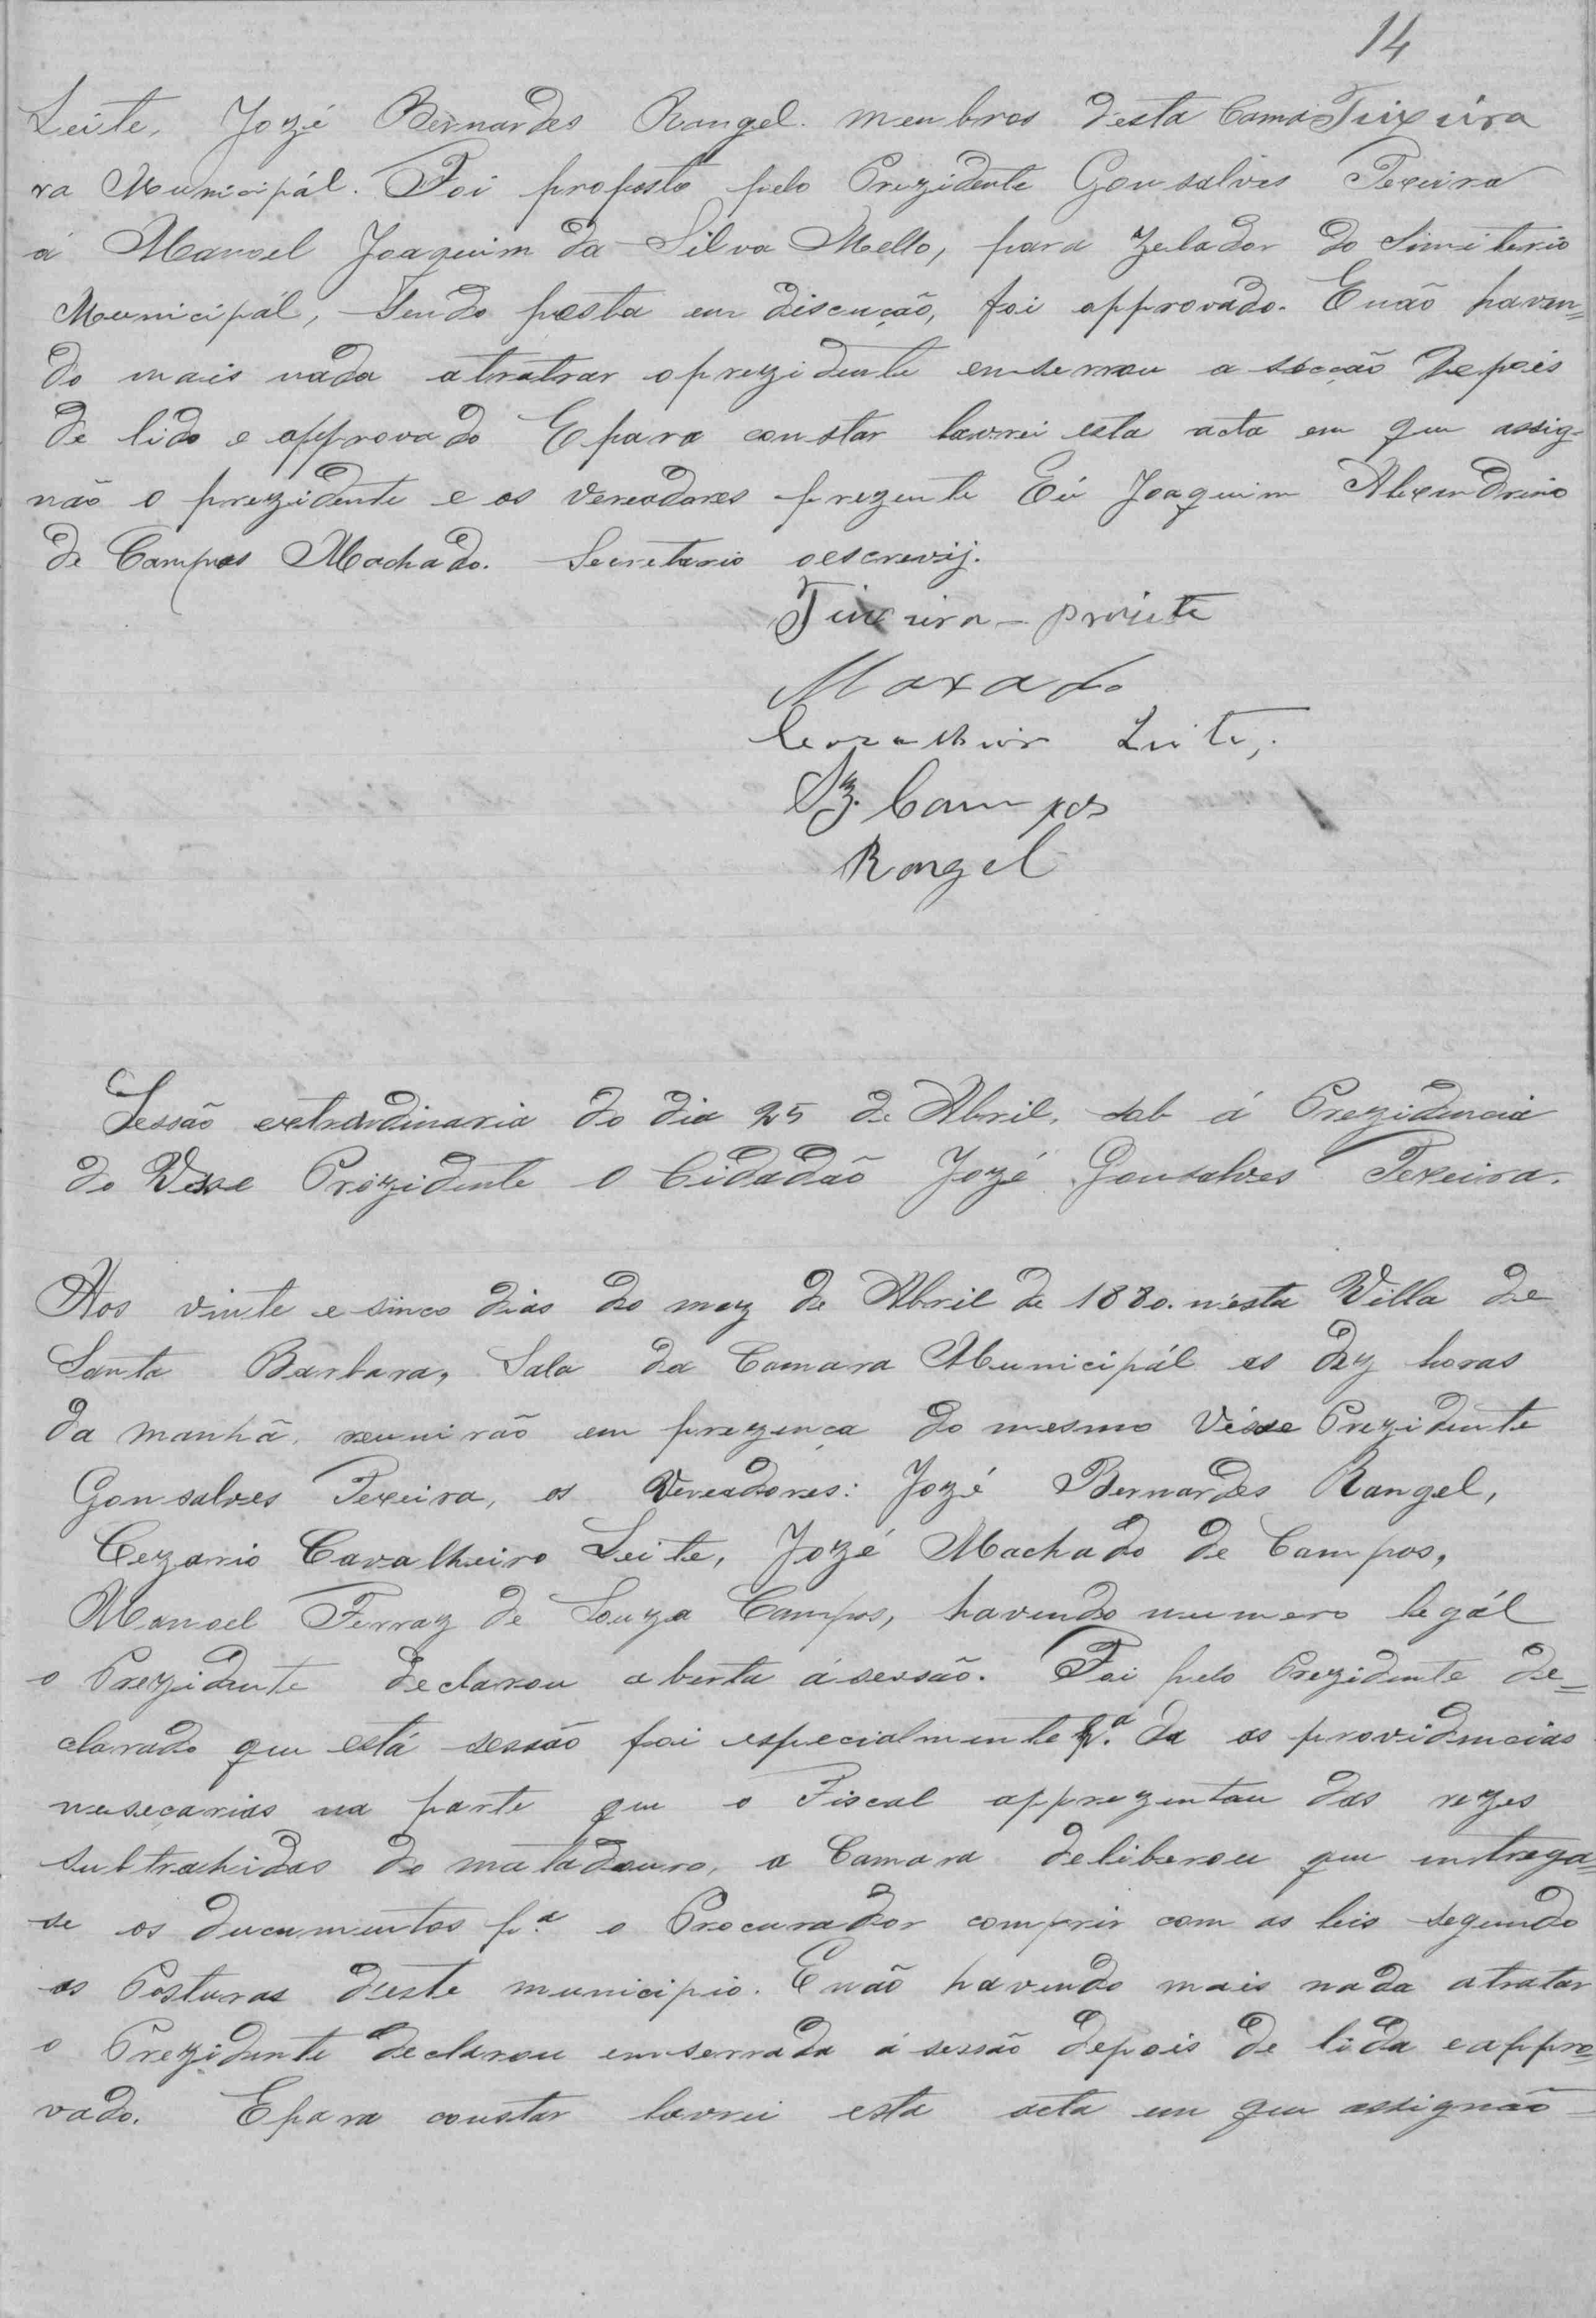 14
Leite, Jozé Bernardes Rangel. menbros desta Cama Teixeira
ra Municipál. Foi proposto pelo Prezidente Gonsalves Texeira
á Manoel Joaquim da Silva Mello, para Zelador do Simiterio
Municipál, Sendo posta em discução, foi approvado. E não haven=
do mais nada atratrar oprezidente enserrou a secção Depois
de lido e approvado E para constar lavrei esta acta em que assig-
não o prezidente e os vereadores prezente Eú Joaquim Alexandrino
de Campos Machado. Secretario oescrevij.
Teixeira -
Maxado
Leite,
Campos
Rangel
Sessão extrardinaria do dia 25 de Abril, sob á Prezidencia
do Vese Prezidente O Cidadão Jozé Gonsalves Texeira.
Aos vinte e sinco dias do mez de Abril de 1880. n'esta Villa de
Santa Barbara, Sala da Camara Municipál as dez horas
da manhã, reunirão em prezença do mesmo Vesse Prezidente
Gonsalves Texeira, os Vereadores: Jozé Bernardes Rangel,
Cezario Cavalheiro Leite, Jozé Machado de Campos,
Manoel Ferraz de Souza Campos, havendo numero legál
o Prezidente declarou aberta á sessão. Foi pelo Prezidente de=
clarado que está sessão foi especialmente p.ª da as providencias
nesecarias na parte que o Fiscal apprezentou das rezes
subtrahidas do matadouro, a Camara deliberou que entrega=
se os ducumentos p.ª o Procurador comprir com as leis segundo
as Posturas deste municipio. E não havendo mais nada atratar
o Prezidente declarou enserrada á sessão depois de lida e appro=
vado. E para constar lavrei esta acta em que assignão